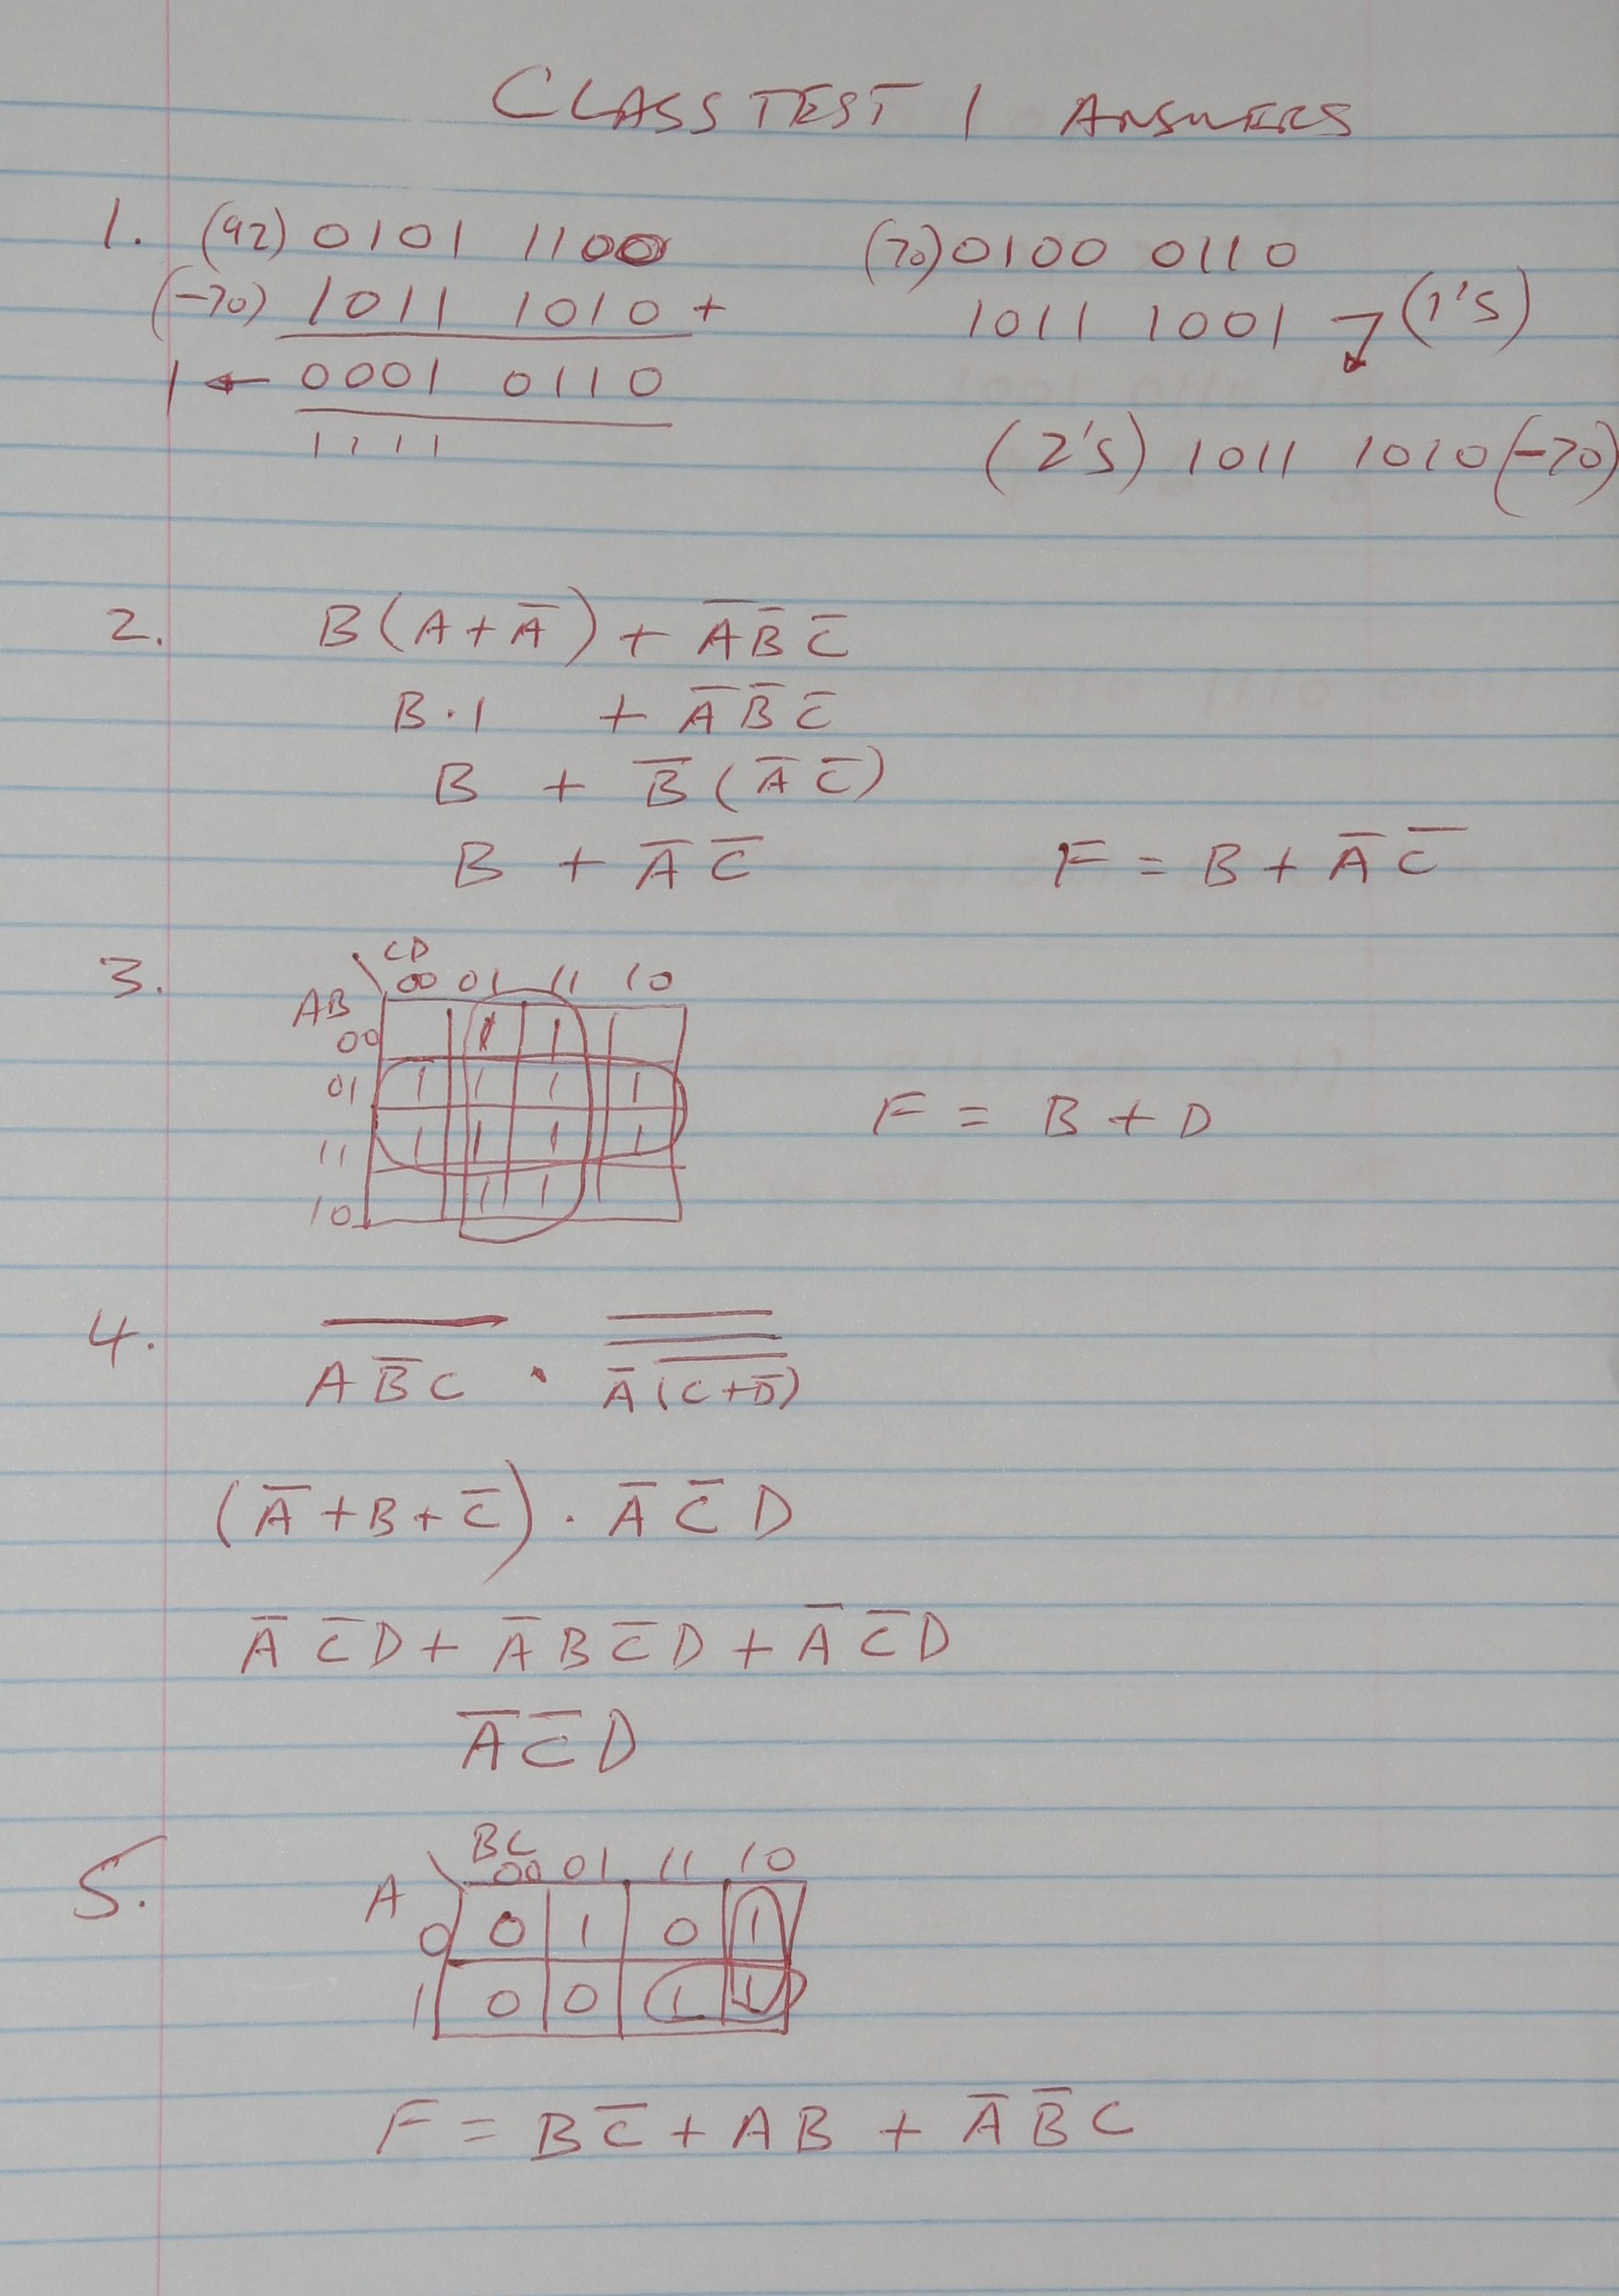 CLASS TEST 1 ANSWERS
1. (92) 0101 1100 (70) 0100 0110
(-70) 1011 1010 + 1011 1001 (1's)
1 ← 0001 0110
1111 (2's) 1011 1010 (-70)
2. B(A+A̅) + A̅B̅C̅
B·1 + A̅B̅C̅
B + B̅(A̅C̅)
B + A̅C̅ F = B + A̅C̅
3. CD
00 01 11 10
AB
00 1 1
01 1 1 1 1
F = B + D
11 1 1 1 1
10 1 1
4. AB̅C · A̅(C+D̅)
(A̅+B+C̅) · A̅C̅D
A̅C̅D + A̅BC̅D + A̅C̅D
A̅C̅D
5. BC
00 01 11 10
A
0 0 1 0 1
1 0 0 1 1
F = BC̅ + AB + A̅B̅C